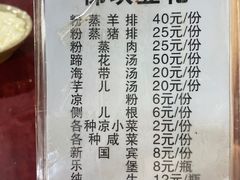 粉蒸羊排 40元/份
粉蒸猪排 25元/份
粉蒸肉 25元/份
蹄花汤 50元/份
海带汤 20元/份
芋儿汤 20元/份
凉粉 6元/份
侧儿根 6元/份
各种凉小菜 2元/份
各种咸菜 2元/份
新国宾 8元/瓶
乐堡 8元/瓶
纯生 12元/瓶